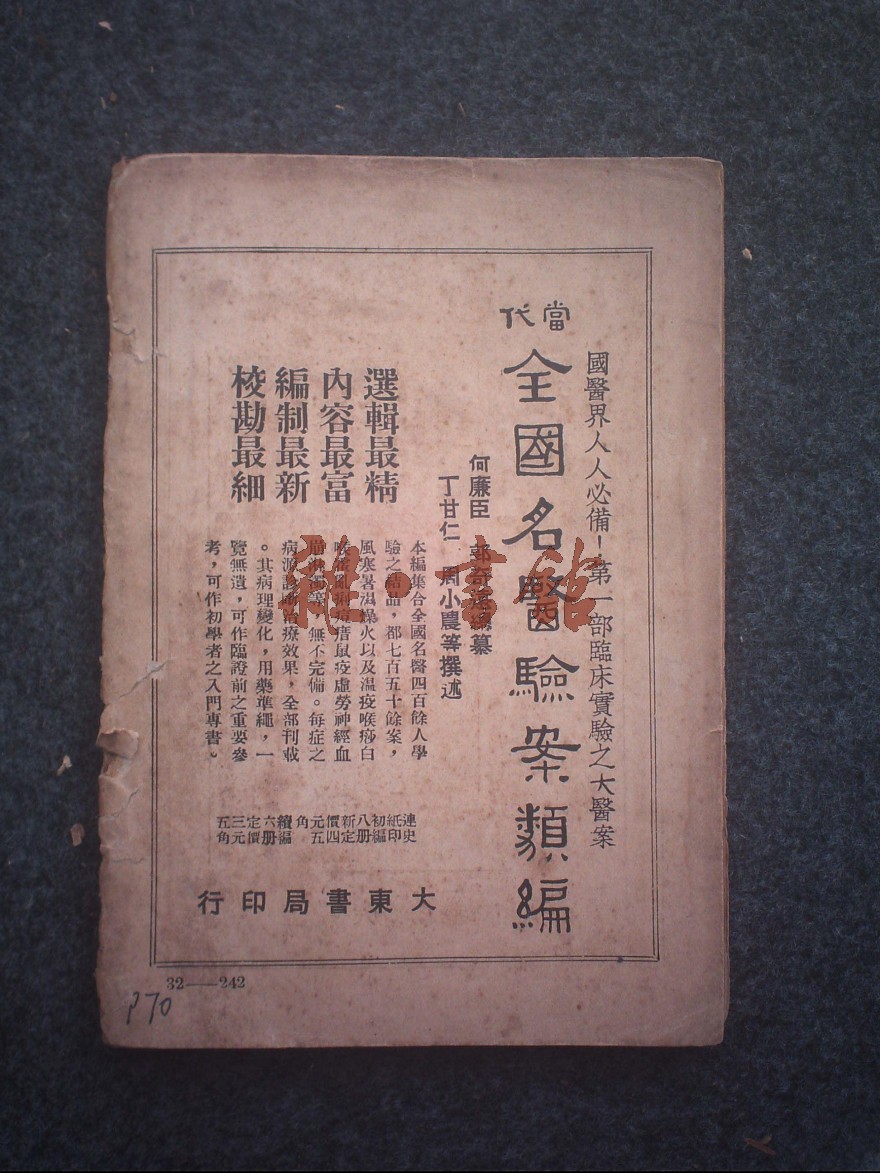 國醫界人人必備！第一部臨床實驗之大醫案
當代
全國名醫驗案類編
何廉臣 編纂
丁甘仁 周小農等撰述
選輯最精
內容最富
編制最新
校勘最細
本編集合全國名醫四百餘人學
驗之結晶，都七百五十餘案，
風寒暑濕燥火以及温疫喉痧白
喉霍亂痢痘瘄鼠疫虛勞神經血
崩淋濁等，無不完備。每症之
病源診斷治療效果，全部刊載
。其病理變化，用藥準繩，一
覽無遺，可作臨證前之重要參
考，可作初學者之入門專書。
連史紙印初編八册新定價四元五角
續編六册定價三元五角
大東書局印行
32——242
P70
書館